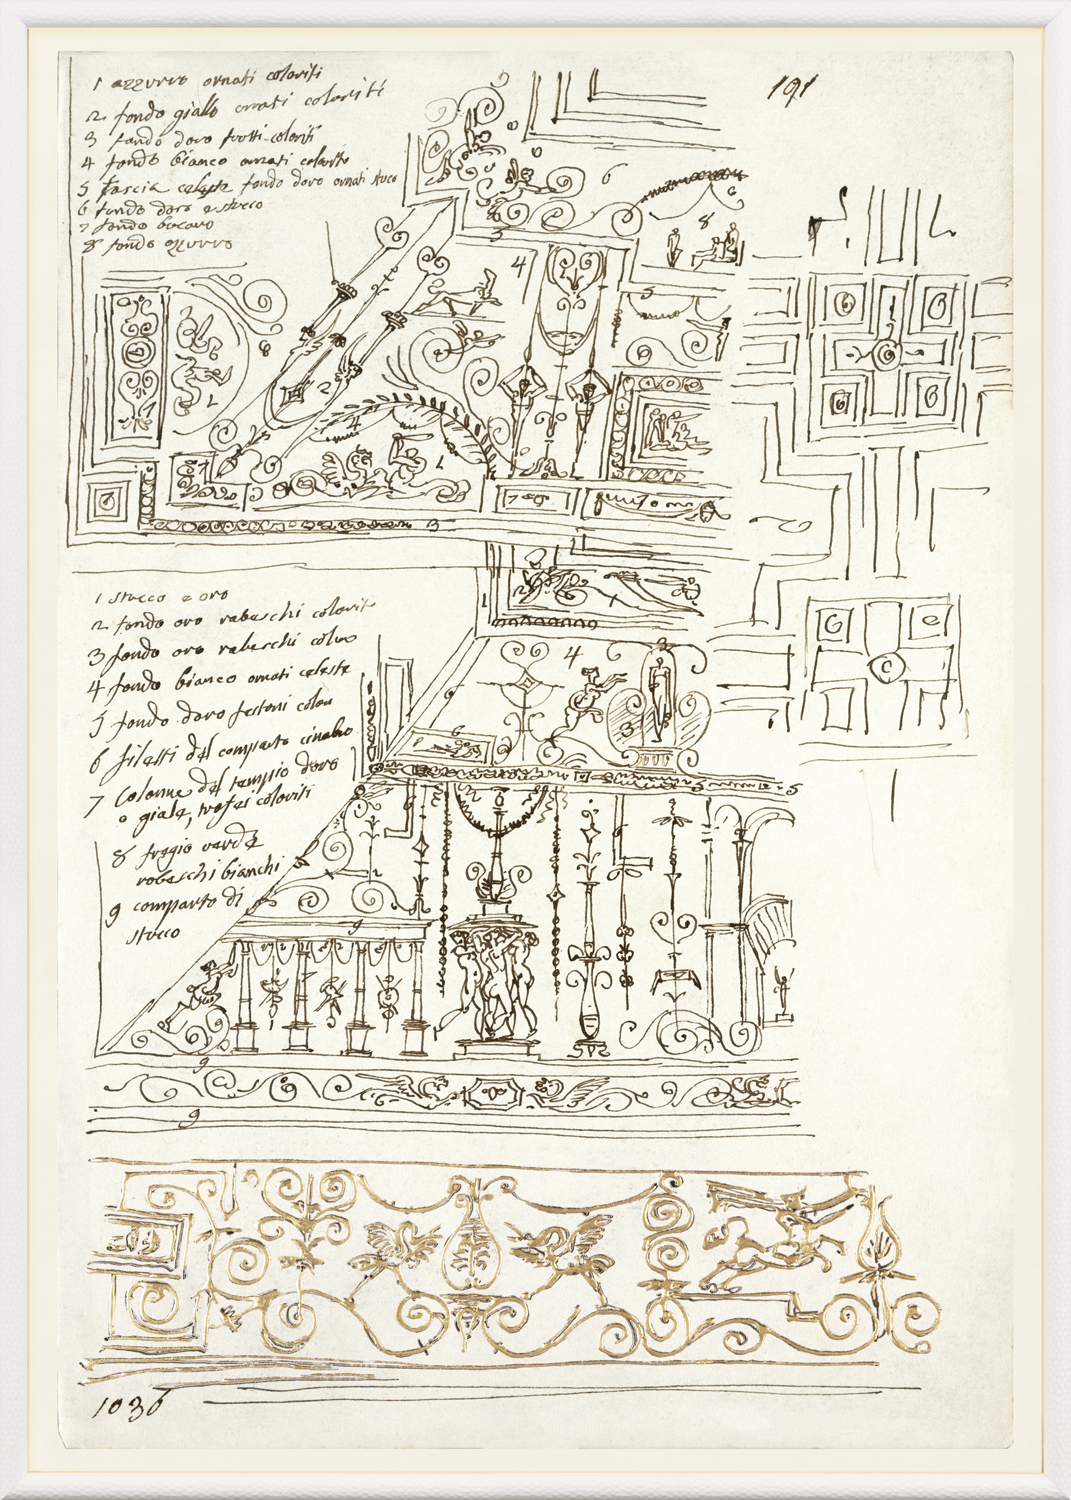 191
1 azzurro ornati coloriti
2 fondo giallo ornati coloriti
3 fondo doro frutti coloriti
4 fondo bianco ornati colorito
5 fascia celeste fondo doro ornati stuco
6 fondo doro e stuco
7 fondo
8 fondo azzurro
1 stucco e oro
2 fondo oro rabeschi colorit
3 fondo oro rabeschi
4 fondo bianco ornati celeste
5 fondo doro festoni
6 filetti del comparto cinabro
7 Colonne del tempio doro
o giale, trofei coloriti
8 fregio verde
rabeschi bianchi
9 comparto di
stucco
1036